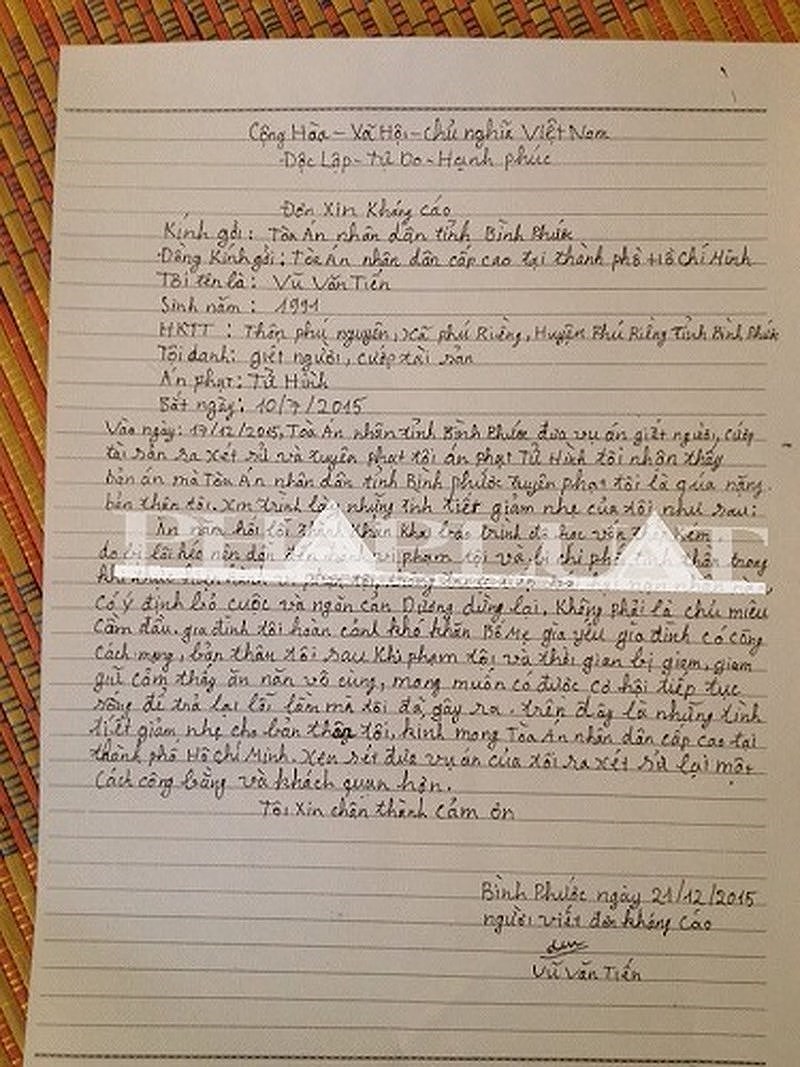 Cộng Hòa - Xã Hội - chủ nghĩa Việt Nam
Độc Lập - Tự Do - Hạnh phúc
Đơn Xin Kháng Cáo
Kính gởi : Tòa Án nhân dân tỉnh Bình Phước
Đồng Kính gởi : Tòa Án nhân dân cấp cao tại thành phố Hồ Chí Minh
Tôi tên là : Vũ Văn Tiến
Sinh năm : 1991
HKTT : Thôn phú nguyên, Xã phú Riềng, Huyện Phú Riềng Tỉnh Bình Phước
Tội danh: giết người, cướp tài sản
Án phạt : Tử Hình
Bắt ngày: 10/7/2015
Vào ngày: 17/12/2015, Tòa Án nhân tỉnh Bình Phước đưa vụ án giết người, cướp
tài sản ra xét sử và tuyên phạt tôi án phạt Tử Hình tôi nhận thấy
bản án mà Tòa Án nhân dân tỉnh Bình phước tuyên phạt tôi là quá nặng.
bản thân tôi. Xin trình bày những tình tiết giảm nhẹ của tôi như sau:
Ăn năn hối lỗi thành Khẩn Khai báo trình độ học vấn thấp kém
do bị lôi kéo nên dẫn đến hành vi phạm tội và bị chi phối tinh thần trong
khi
Có ý định bỏ cuộc và ngăn cản Dương dừng lại. Không phải là chủ mưu
Cầm đầu. gia đình tôi hoàn cảnh khó khăn Bố Mẹ già yếu gia đình có công
Cách mạng, bản thân tôi sau Khi phạm tội và thời gian bị giam, giam
giữ cảm thấy ăn năn vô cùng, mong muốn có được cơ hội tiếp tục
sống để trả lại lỗi lầm mà tôi đã gây ra. trên đây là những tình
tiết giảm nhẹ cho bản thân tôi, kính mong Tòa Án nhân dân cấp cao tại
thành phố Hồ Chí Minh. Xem sét đưa vụ án của tôi ra xét sử lại một
Cách công bằng và khách quan hơn.
Tôi Xin chân thành Cảm ơn
Bình Phước ngày 21/12/2015
người viết đơn kháng Cáo
Vũ Văn Tiến